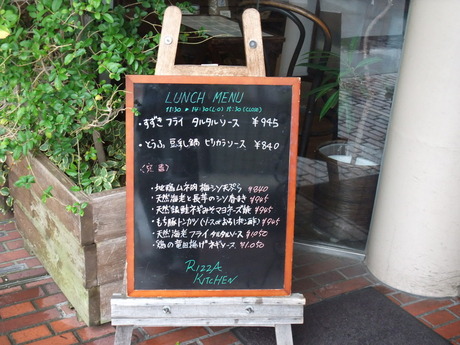 LUNCH MENU
11:30 ▸ 14:30(L.O) 15:30(CLOSE)
・すずきフライ タルタルソース ¥945
・とうふ豆乳鍋 ピリカラソース ¥840
・地鶏ムネ肉 梅シソ天ぷら ¥840
・天然海老と長芋のシソ春まき ¥945
・天然銀鮭ネギみそマヨネーズ焼 ¥945
・もち豚トンカツ(ソースorおろしポン酢) ¥945
・天然海老フライタルタルソース ¥1050
・鶏の竜田揚げネギソース ¥1.050
RIZZA
KITCHEN